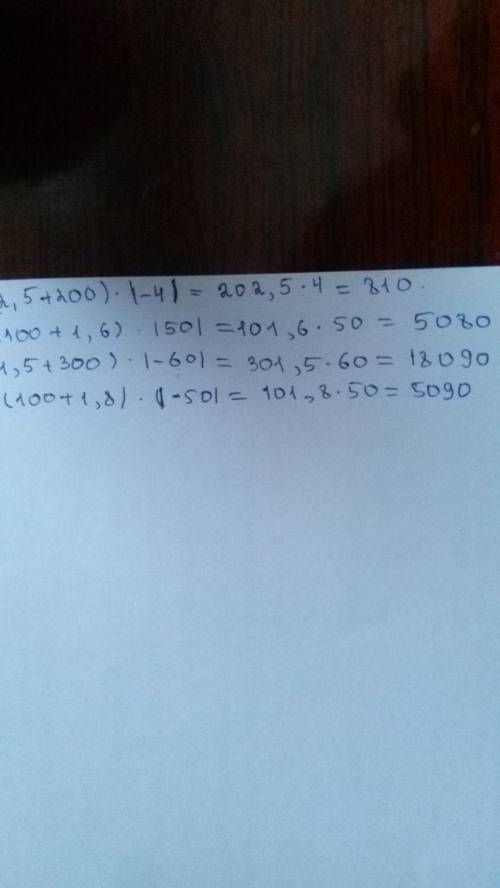 2,5+200) · |-4| = 202,5 · 4 = 810.
100 + 1,6) · |50| = 101,6 · 50 = 5080
1,5+300) · |-60| = 301,5 · 60 = 18090
(100+1,8) · |-50| = 101,8 · 50 = 5090